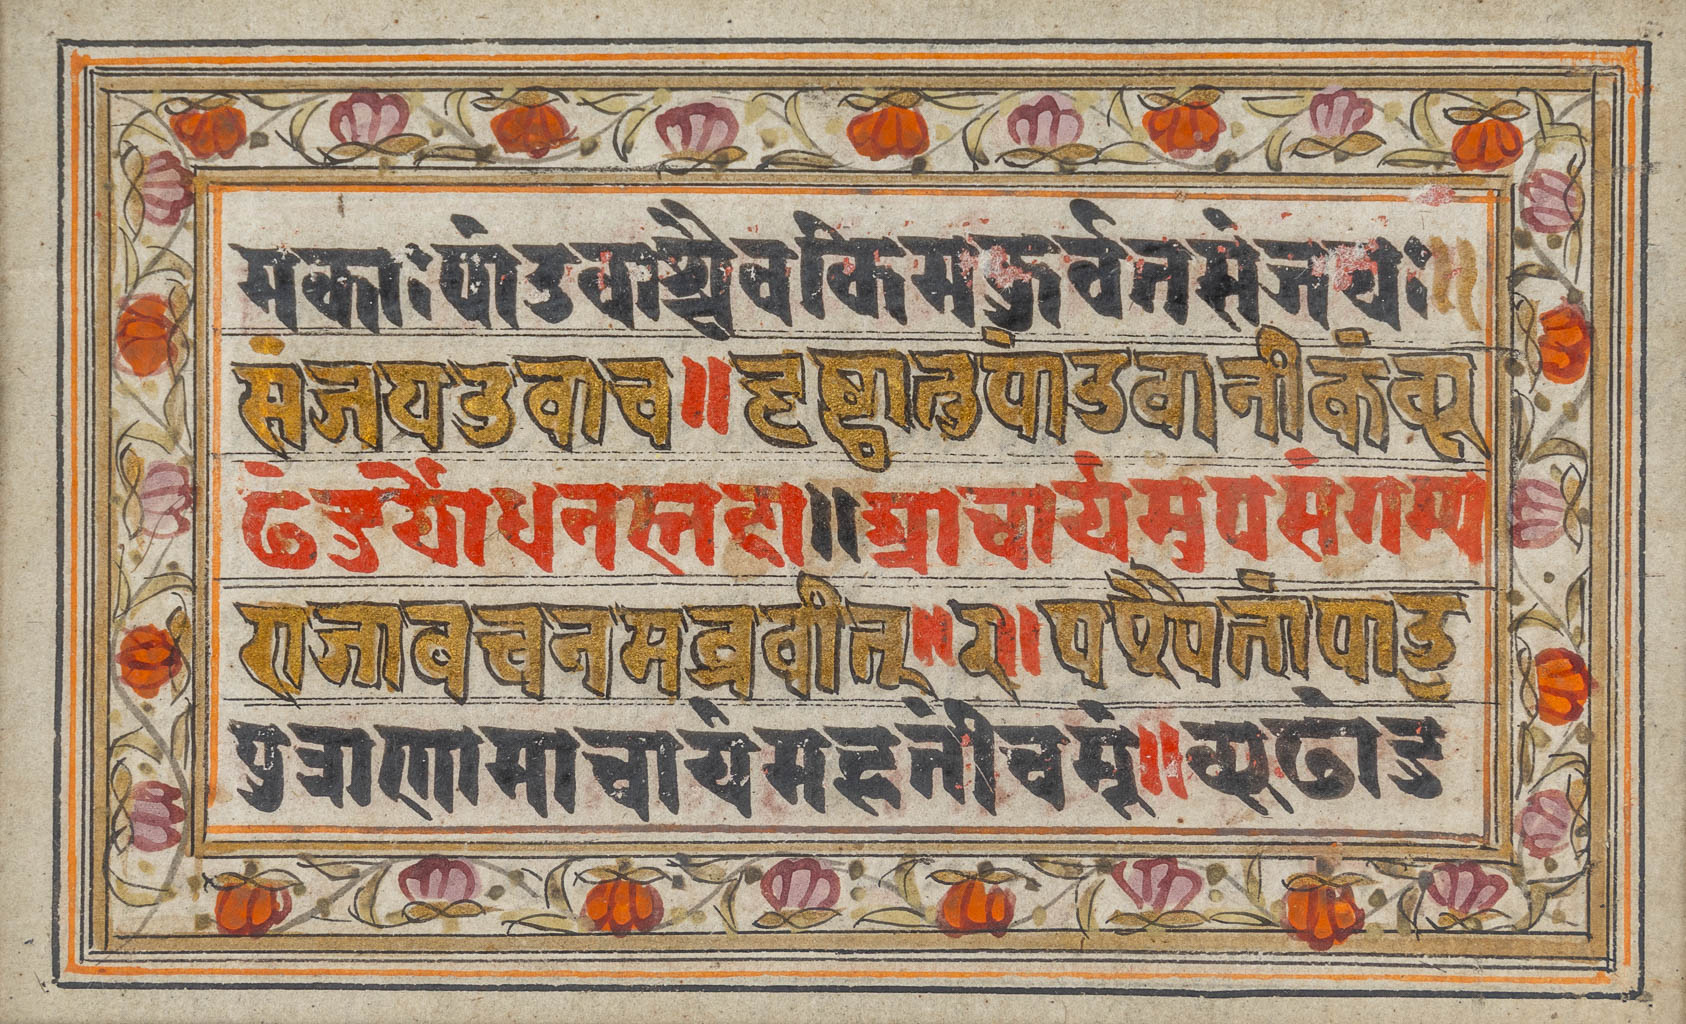 मकाः पांडवाश्चैव किमकुर्वत संजयः ॥
संजय उवाच ॥ दृष्ट्वा तु पांडवानीकं व्यू
ढंदुर्योधनस्तदा ॥ आचार्यमुपसंगम्य
राजावचनमब्रवीत् ॥ २ ॥ पश्यैतां पांडु
पुत्राणामाचार्य महतीं चमूं ॥ व्यूढां द्रु